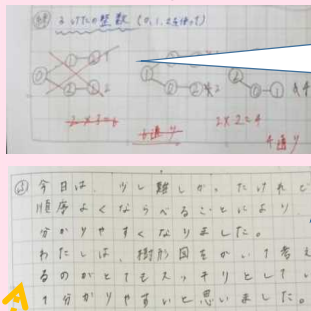 3けたの整数 (0,1,2を使って)
0 1 2
2 1
1 0 2
2
2
0 1
2×3=6
6通り
2×2=4
4通り
今日は、少し難しかったけれど
順序よくならべることにより、
分かりやすくなりました。
わたしは、樹形図をかいて考え
るのがとてもスッキリとしてい
て分かりやすいと思いました。